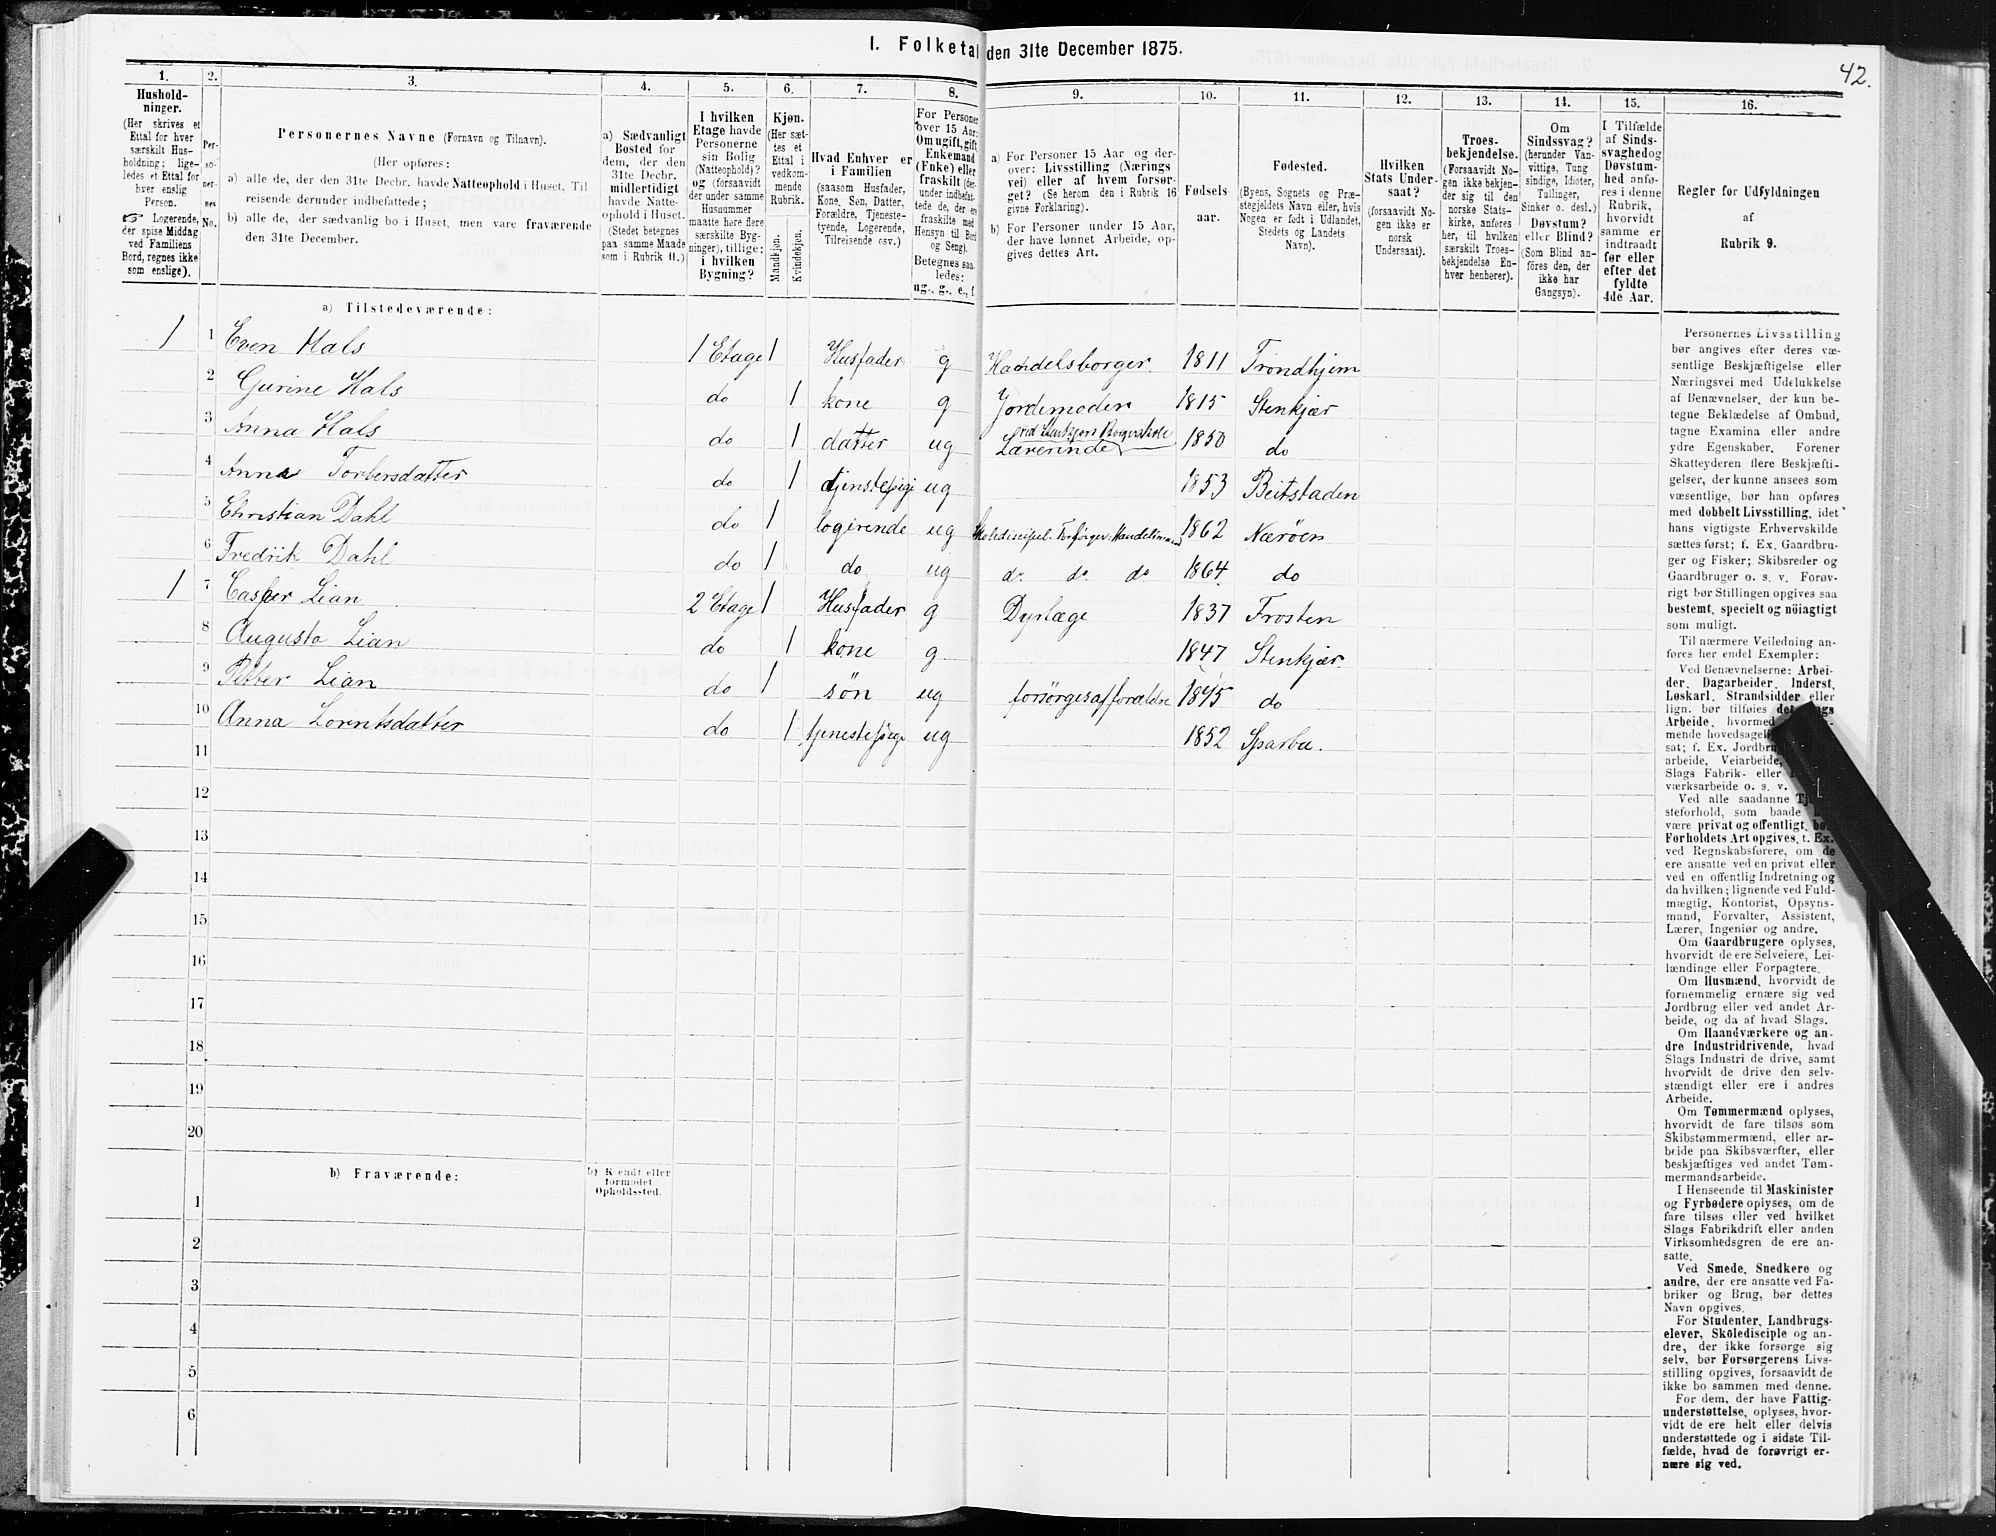 I. Folketal den 31te December 1875.
42.
1. 2. 3. 4. 5. 6. 7. 8. 9. 10. 11. 12. 13. 14. 15. 16.
Hushold-
ninger.
(Her skrives et
Ettal for hver
særskilt Hus-
holdning; lige-
ledes et Ettal for
hver enslig
Person.
☞ Logerende,
der spise Middag
ved Familiens
Bord, regnes ikke
som enslige).
Per-
so-
ner-
nes
No.
Personernes Navne (Fornavn og Tilnavn).
(Her opføres:
a) alle de, der den 31te Decbr. havde Natteophold i Huset, Til-
reisende derunder indbefattede;
b) alle de, der sædvanlig bo i Huset, men vare fraværende
den 31te December.
a) Sædvanligt
Bosted for
dem, der den
31te Decbr.
midlertidigt
havde Natte-
ophold i Huset.
(Stedet betegnes
paa samme Maade
som i Rubrik 11.)
I hvilken
Etage havde
Personerne
sin Bolig
(Natteophold)?
og (forsaavidt
der under samme
Husnummer
maatte høre flere
særskilte Byg-
ninger), tillige:
i hvilken
Bygning?
Kjøn.
(Her sæt-
tes et
Ettal i
vedkom-
mende
Rubrik.
Mandkjøn.
Kvindekjøn.
Hvad Enhver er
i Familien
(saasom Husfader,
Kone, Søn, Datter,
Forældre, Tjeneste-
tyende, Logerende,
Tilreisende osv.)
For Personer
over 15 Aar:
Om ugift, gift
Enkemand
(Enke) eller
fraskilt (der-
under indbefat-
tede de, der ere
fraskilte med
Hensyn til Bord
og Seng).
Betegnes saa-
ledes:
ug., g., e., f.
a) For Personer 15 Aar og der-
over: Livsstilling (Nærings
vei) eller af hvem forsør-
get? (Se herom den i Rubrik 16
givne Forklaring).
b) For Personer under 15 Aar,
der have lønnet Arbeide, op-
gives dettes Art.
Fødsels-
aar.
Fødested.
(Byens, Sognets og Præ-
stegjeldets Navn eller, hvis
Nogen er født i Udlandet,
Stedets og Landets
Navn).
Hvilken
Stats Under-
saat?
(forsaavidt No-
gen ikke er
norsk
Undersaat).
Troes-
bekjendelse.
(Forsaavidt No-
gen ikke bekjen-
der sig til den
norske Stats-
kirke, anføres
her, til hvilken
særskilt Troes-
bekjendelse En-
hver henhører).
Om
Sindssvag?
(herunder Van-
vittige, Tung
sindige, Idioter,
Tullinger,
Sinker o. desl.)
Døvstum?
eller Blind?
(Som Blind an-
føres den, der
ikke har
Gangsyn).
I Tilfælde
af Sinds-
svaghed og
Døvstum-
hed anfø-
res i denne
Rubrik,
hvorvidt
samme er
indtraadt
før eller
efter det
fyldte
4de Aar.
Regler for Udfyldningen
af
Rubrik 9.
a) Tilstedeværende:
1 1 Even Hals 1 Etage 1 Husfader g Handelsborger. 1811 Trondhjem
2 Gurine Hals do 1 kone g Jordemoder 1815 Stenkjær
3 Anna Hals do 1 datter ug Lærerinde ved Stenkjærs Borgerskole 1850 do
4 Anna Torbersdatter do 1 tjenstepige ug 1853 Beitstaden
5 Christian Dahl do 1 logirende ug Skoledisipel. Forsørger: Handelsmand 1862 Nærøen
6 Fredrik Dahl do 1 do ug do. do. do 1864 do
1 7 Casper Lian 2 Etage 1 Husfader g Dyrlæge 1837 Frosten
8 Augusta Lian do 1 kone g 1847 Stenkjær
9 Petter Lian do 1 søn ug forsørges af forældre do
10 Anna Lorntsdatter do 1 tjenestepige ug 1852 Sparbu.
11
12
13
14
15
16
17
18
19
20
b) Fraværende:
b) Kjendt eller
formodet
Opholdssted.
1
2
3
4
5
6
Personernes Livsstilling
bør angives efter deres væ-
sentlige Beskjæftigelse eller
Næringsvei med Udelukkelse
af Benævnelser, der kun be-
tegne Beklædelse af Ombud,
tagne Examina eller andre
ydre Egenskaber. Forener
Skatteyderen flere Beskjæfti-
gelser, der kunne ansees som
væsentlige, bør han opføres
med dobbelt Livsstilling, idet
hans vigtigste Erhvervskilde
sættes først; f. Ex. Gaardbru-
ger og Fisker; Skibsreder og
Gaardbruger o. s. v. Forøv-
rigt bør Stillingen opgives saa
bestemt, specielt og nöiagtigt
som muligt.
Til nærmere Veiledning an-
føres her endel Exempler:
Ved Benævnelserne: Arbei-
der, Dagarbeider, Inderst,
Løskarl, Strandsidder eller
lign. bør tilføies
Arbeide, hvormed
mende hovedsagel
sat; f. Ex. Jordbru
arbeide, Veiarbeide,
Slags Fabrik- eller
værksarbeide o. s. v.
Ved alle saadanne
steforhold, som baade
være privat og offentligt, bør
Forholdets Art opgives, t. Ex.
ved Regnskabsførere, om de
ere ansatte ved en privat eller
ved en offentlig Indretning og
da hvilken; lignende ved Fuld-
mægtig, Kontorist, Opsyns-
mand, Forvalter, Assistent,
Lærer, Ingeniør og andre.
Om Gaardbrugere oplyses,
hvorvidt de ere Selveiere, Lei-
lændinge eller Forpagtere.
Om Husmænd, hvorvidt de
fornemmelig ernære sig ved
Jordbrug eller ved andet Ar-
beide, og da af hvad Slags.
Om Haandværkere og an-
dre Industridrivende, hvad
Slags Industri de drive, samt
hvorvidt de drive den selv-
stændigt eller ere i andres
Arbeide.
Om Tømmermænd oplyses,
hvorvidt de fare tilsøs som
Skibstømmermænd, eller ar-
beide paa Skibsværfter, eller
beskjæftiges ved andet Tøm-
mermandsarbeide.
I Henseende til Maskinister
og Fyrbødere oplyses, om de
fare tilsøs eller ved hvilket
Slags Fabrikdrift eller anden
Virksomhedsgren de ere an-
satte.
Ved Smede, Snedkere og
andre, der ere ansatte ved Fa-
briker og Brug, bør dettes
Navn opgives.
For Studenter, Landbrugs-
elever, Skoledisciple og an-
dre, der ikke forsørge sig
selv, bør Forsørgerens Livs-
stilling opgives, forsaavidt de
ikke bo sammen med denne.
For dem, der have Fattig-
understøttelse, oplyses, hvor-
vidt de ere helt eller delvis
understøttede og i sidste Til-
fælde, hvad de forøvrigt er-
nære sig ved.